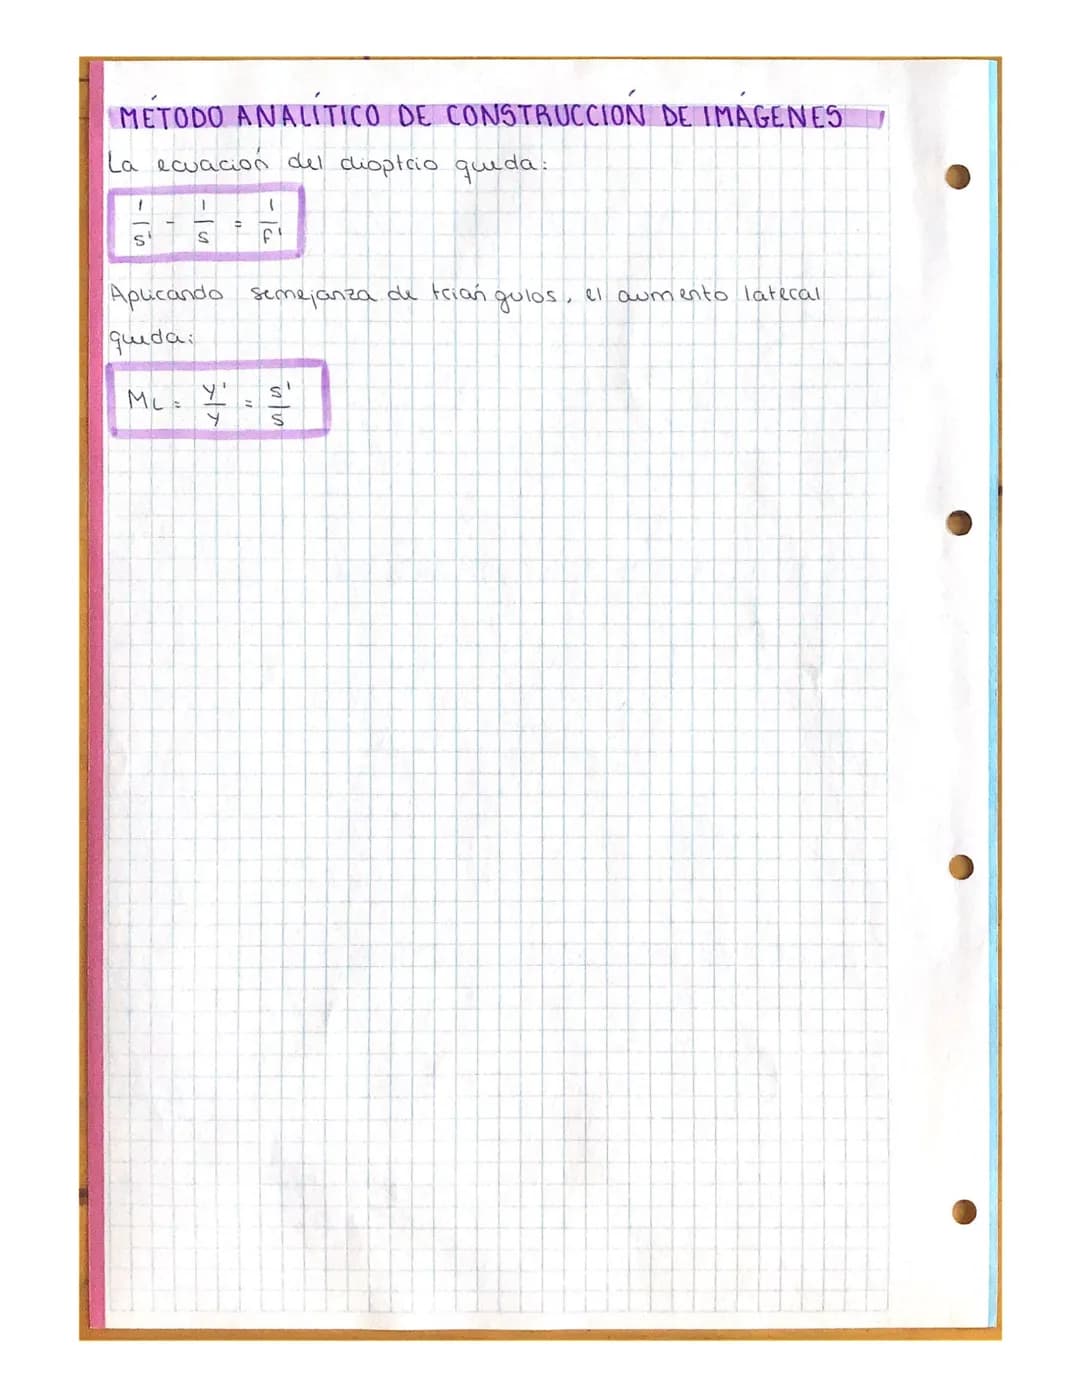 MÉTODO ANALÍTICO DE CONSTRUCCIÓN DE IMÁGENES
La ecuación del dioptrio queda:
1/s' - 1/s = 1/f'
Aplicando semejanza de triángulos, el aumento lateral
queda:
ML = y'/y = s'/s